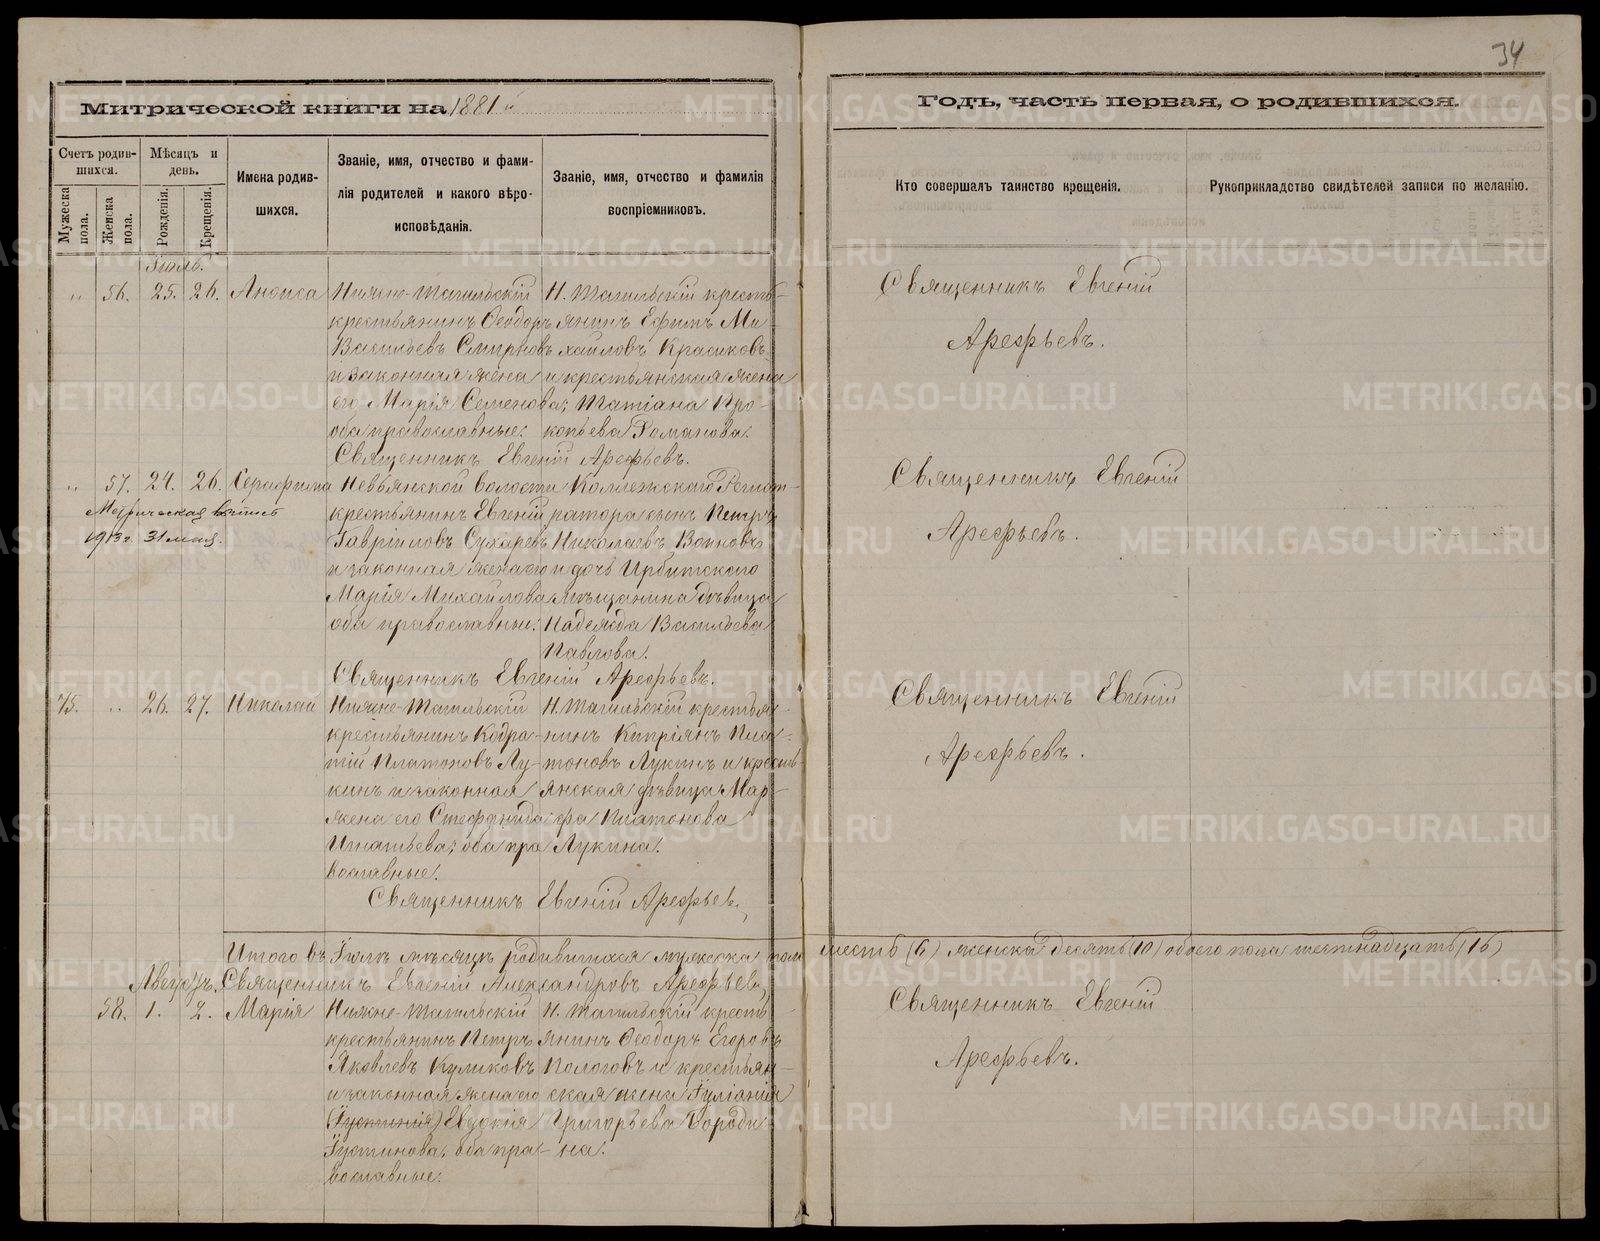 34
Митрической книги на 1881й
Годъ, часть первая, о родившихся.
Счетъ родив-
шихся.
Мужеска
пола.
Женска
пола.
Мѣсяцъ и
день.
Рожденія.
Крещенія.
Имена родив-
шихся.
Званіе, имя, отчество и фами-
лія родителей и какого вѣро-
исповѣданія.
Званіе, имя, отчество и фамилія
воспріемниковъ.
Кто совершалъ таинство крещенія.
Рукоприкладство свидѣтелей записи по желанію.
Іюль.
„ 56. 25. 26. Анфиса
Нижне-Тагильскій
крестьянинъ Ѳеодоръ
Васильевъ Смирновъ
и законная жена
его Марія Семенова;
оба православные.
Н. Тагильскій кресть-
янинъ Ефимъ Ми-
хайловъ Красиковъ
и крестьянская жена
Татіана Про-
копьева Романова.
Священникъ Евгеній
Арефьевъ.
Священникъ Евгеній Арефьевъ.
„ 57. 24. 26. Серафима
Метрическая выпись
1913 г. 31 мая.
Невьянской волости
крестьянинъ Евгеній
Гавріиловъ Сухаревъ
и законная жена его
Марія Михайлова
оба православные.
Коллежскаго Регист-
ратора сынъ Петръ
Николаевъ Воиновъ
и дочь Ирбитскаго
мѣщанина дѣвица
Надежда Васильева
Павлова.
Священникъ Евгеній
Арефьевъ.
Священникъ Евгеній Арефьевъ.
75. „ 26. 27. Николай
Нижне-Тагильскій
крестьянинъ Кодра-
тій Платоновъ Лу-
кинъ и законная
жена его Стефанида
Игнатьева; оба пра-
вославные.
Н. Тагильскій крестья-
нинъ Кипріянъ Пла-
тоновъ Лукинъ и кресть-
янская дѣвица Мар-
фа Платонова
Лукина.
Священникъ Евгеній
Арефьевъ.
Священникъ Евгеній Арефьевъ
Итого въ Іюлѣ мѣсяцѣ родившихся мужеска пола шесть (6) женска десять (10) обоего пола шестнадцать (16)
Священникъ Евгеній Александровъ Арефьевъ
Августъ.
58. 1. 2. Марія
Нижне-Тагильскій
крестьянинъ Петръ
Яковлевъ Куликовъ
и законная жена его
(Іустинія) Евдокія
Іустинова, оба пра-
вославные.
Н. Тагильскій кресть-
янинъ Ѳеодоръ Егоровъ
Пологовъ и крестьян-
ская жена Іуліанія
Григорьева Бороди-
на.
Священникъ Евгеній
Арефьевъ.
METRIKI.GASO-URAL.RU